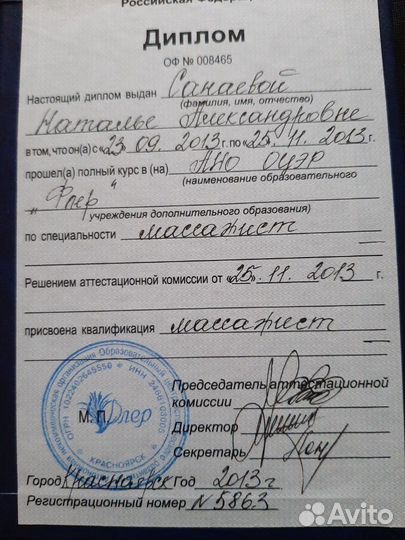 Российская Федерац
Диплом
ОФ № 008465
Настоящий диплом выдан Санаевой
(фамилия, имя, отчество)
Наталье Александровне
в том, что он(а) с «23» 09. 2013г. по «25». 11. 2013г.
прошел(а) полный курс в (на) АНО ОЦЭР
(наименование образовательного
"Флер"
учреждения дополнительного образования)
по специальности массажист
Решением аттестационной комиссии от «25».11. 2013 г.
присвоена квалификация массажист
Председатель аттестационной
комиссии
М. П.
Флер
Директор
Секретарь
КРАСНОЯРСК
Город Красноярск Год 2013г
Регистрационный номер N 5863
Avito